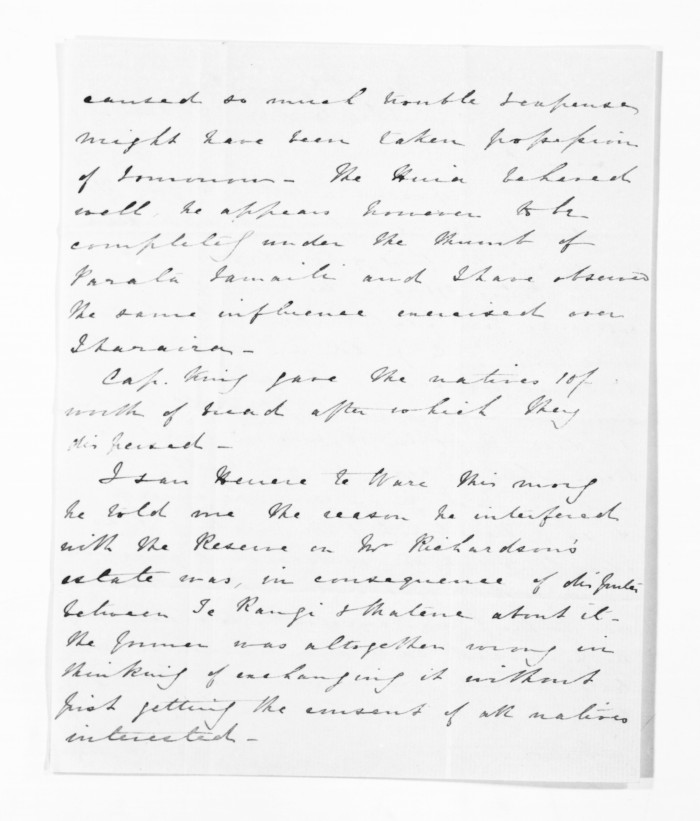 caused so much trouble & expense
might have been taken possession
of tomorrow - The Huia behaved
well, he appears however to be
completely under the thumb of
Parata and I have observed
the same influence exercised over
Iharaira -
Cap. King gave the natives 10/
worth of bread after which they
dispersed -
I saw Henere te Ware this morg
he told me the reason he interfered
with the Reserve on Mr Richardson's
estate was, in consequence of disputes
between Te Rangi & Matene about it -
the former was altogether wrong in
thinking of exchanging it without
first getting the consent of all natives
interested -